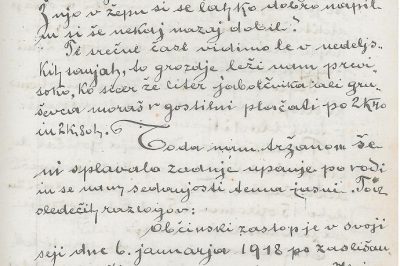 Z njo v žepu si se lahko dobro napil
in si še nekaj nazaj dobil."
Te srečne čase vidimo le v nedeljs-
kih sanjah, to grozdje leži nam previ
soko, ko sicer že liter jabolčnika ali gru-
ševca moraš v gostilni plačati po 2 K 40
in 2 K 80 h. 6
Toda nam tržanom še
ni splavalo zadnje upanje po vodi
in se nam sedanjosti tema jasni. Te iz
sledečih razlogov:
Občinski zastop je v svoji
seji dne 6. januarja 1918 po zaslišan